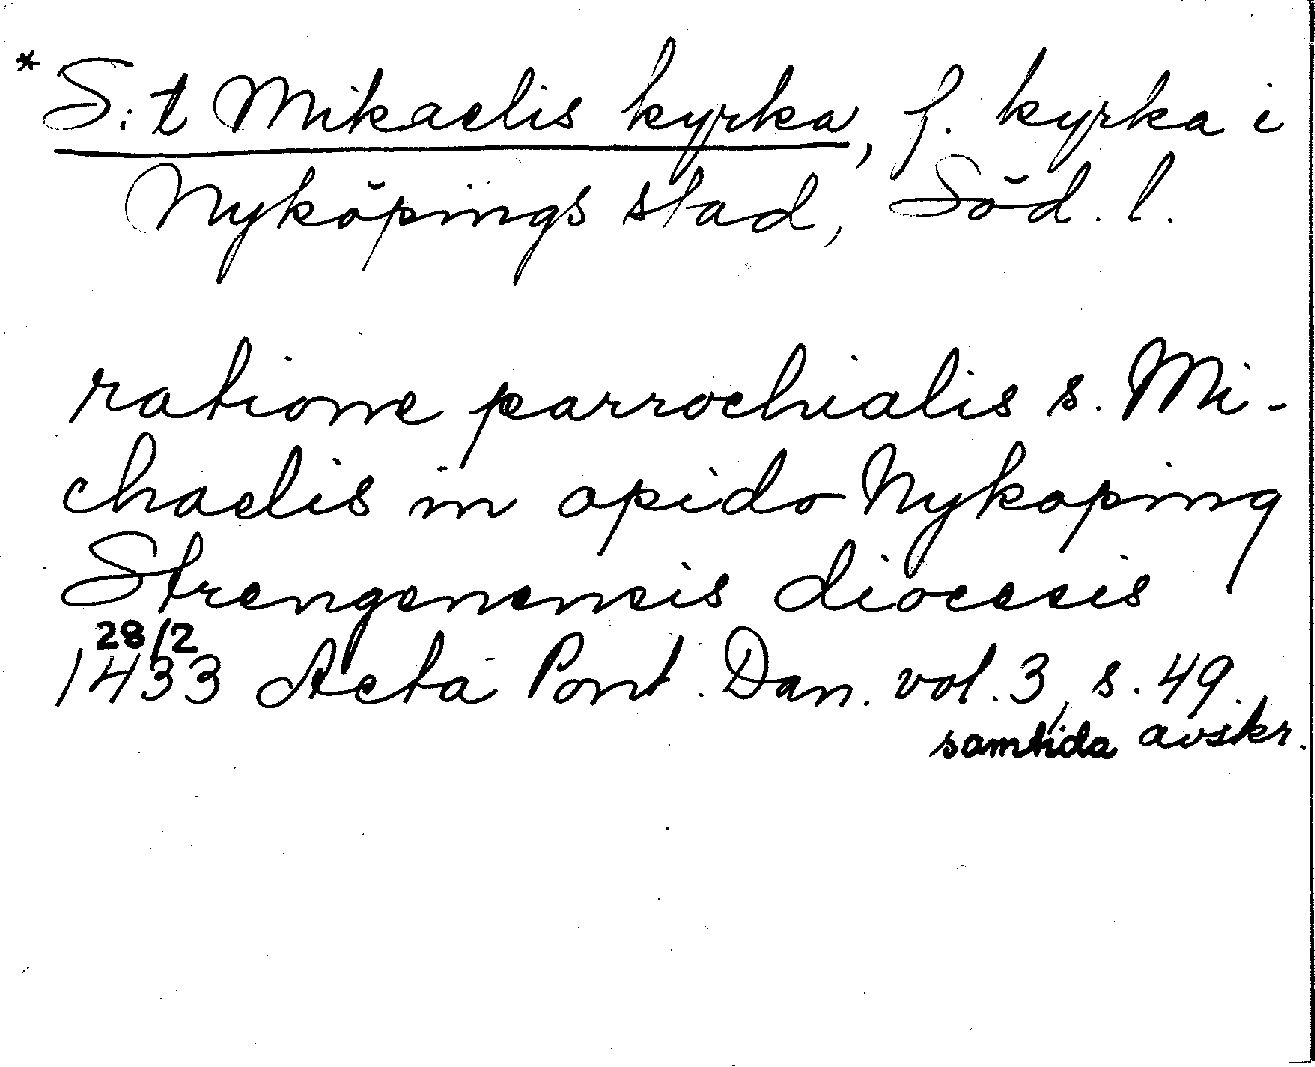 * S:t Mikaelis kyrka, f. kyrka i
Nyköpings stad, Söd. l.
ratione parrochialis s. Mi-
chaelis in opido Nykoping
Strengenensis diocesis
28/2
1433 Acta Pont. Dan. vol. 3, s. 49.
samtida avskr.